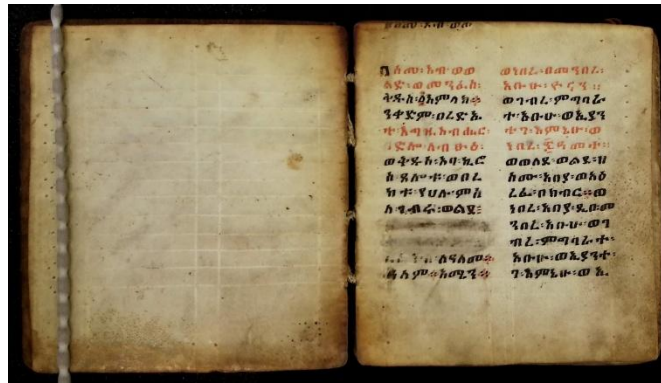 በስመ፡ አብ፡ ወወ
ልድ፡ ወመንፈስ፡
ቅዱስ፡ ፩አምላክ።
ንቀድም፡ በረድኤ
ተ፡ እግዚአብሔር
ወቅዱስ፡ አባ፡ ኪሮ
ጸሎቱ፡ ወበረ
ከቱ፡ የሀሉ፡ ምስ
ለ፡ ገብሩ፡ ወልደ
ለዓለመ፡
ዓለም። አሜን።
ወነበረ፡ በመንበረ፡
አቡሁ፡ ዮናን ።
ወገብረ፡ ምግባራ
ተ፡ አቡሁ፡ ወኢያን
ተገ፡ እምኔሁ፡ ወ
ነበረ፡ ዓመተ፡
ወወለደ፡ ወልደ፡ ዘ
ስሙ፡ አብያ፡ ወአዕ
ረፈ፡ በክብር። ወ
ነበረ፡ አብያ፡ ዲበ፡ መ
ንበረ፡ አቡሁ፡ ወገ
ብረ፡ ምግባራተ፡
አቡሁ፡ ወኢያንተ
ገ፡ እምኔሁ፡ ወ እ